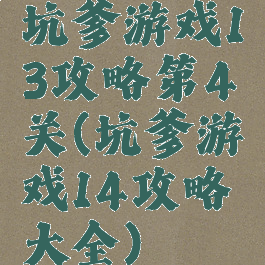 坑爹游戏1
3攻略第4
关(坑爹游
戏14攻略
大全)